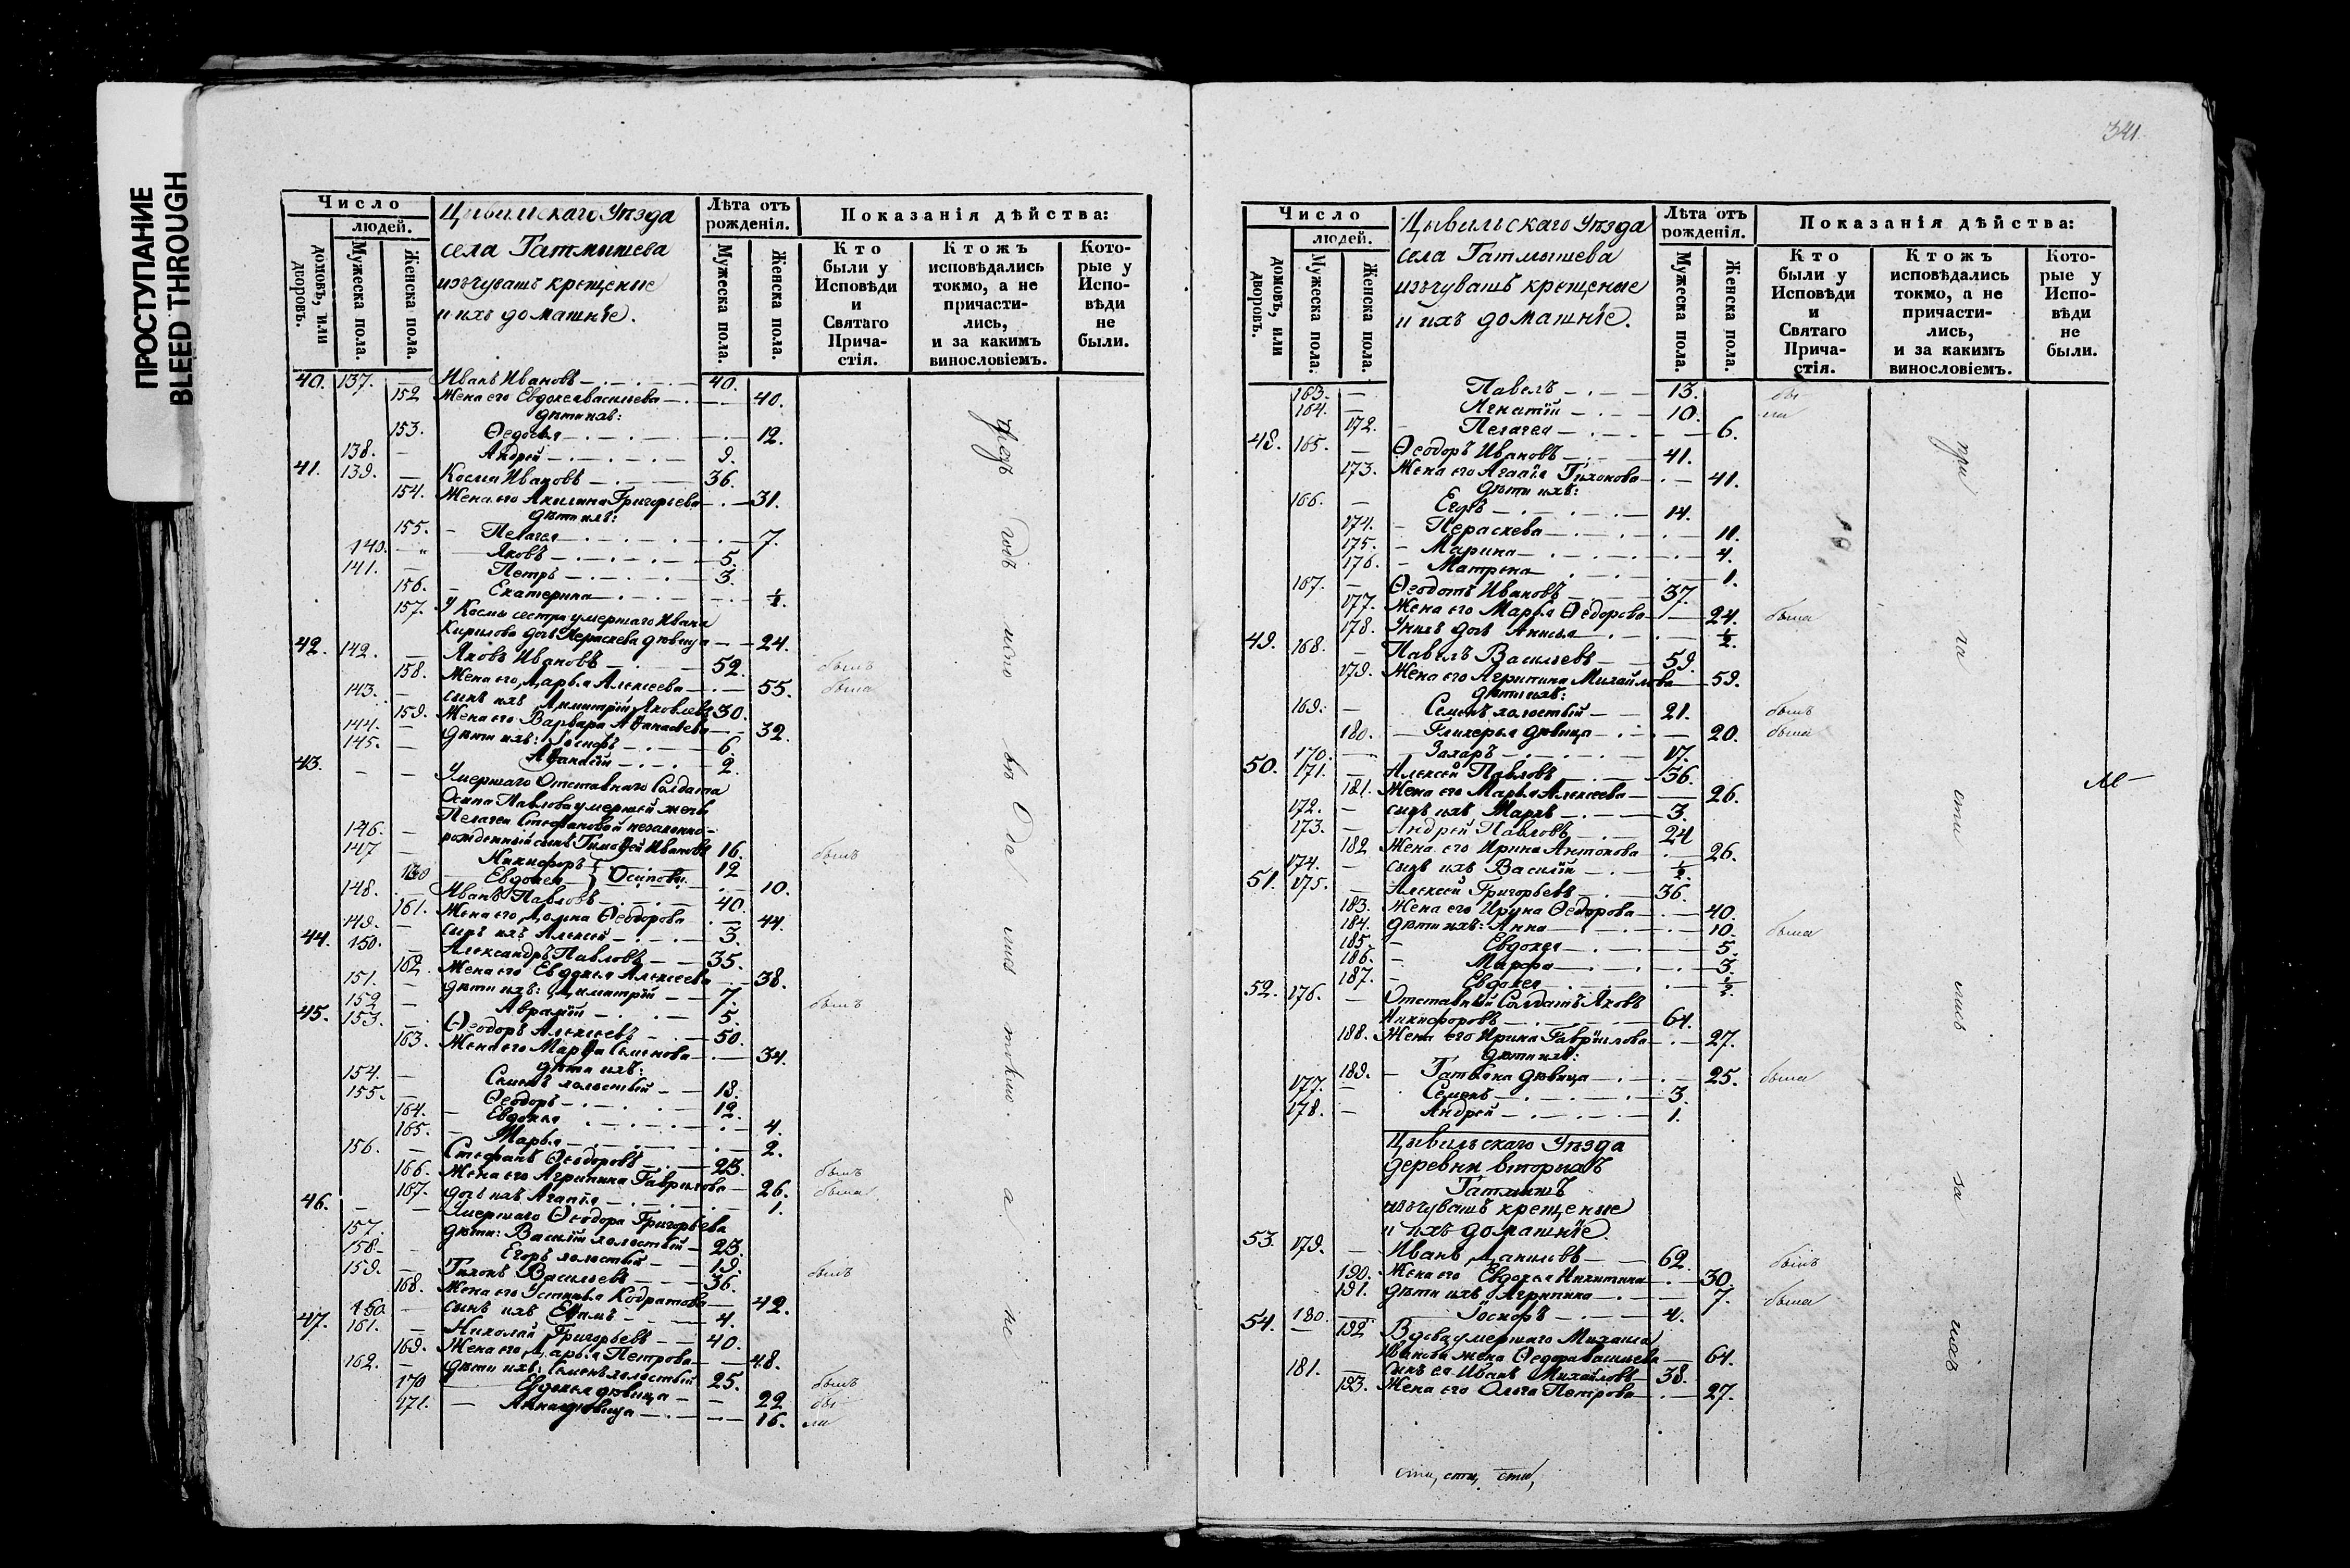 ПРОСТУПАНИЕ
BLEED THROUGH
Число
людей.
домовъ, или дворовъ.
Мужеска пола.
Женска пола.
Цывильскаго Уѣзда
села Татмышева
изъ чувашъ крещеные
и ихъ домашніе.
Лѣта отъ рожденія.
Мужеска пола.
Женска пола.
Показанія дѣйства:
Кто были у Исповѣди и Святаго Прича-стія.
Ктожъ исповѣдались токмо, а не причасти-лись, и за какимъ винословіемъ.
Кото-рые у Испо-вѣди не были.
40. 137. — Иванъ Ивановъ — 40.
152 Жена его Евдокея Васильева — 40.
дѣти ихъ:
153. Ѳедосья — 12.
138. — Андрей — 9.
41. 139. — Косма Ивановъ — 36.
154. Жена его Акилина Григорьева — 31.
дѣти ихъ:
155. — Пелагея — 7.
140. — Яковъ — 5.
141. — Петръ — 3.
156. — Екатерина — ½.
157. У Космы сестра умершаго Ивана
Кирилова дочь Пераскева дѣвица — 24.
42. 142. — Яковъ Ивановъ — 52. былъ
158. Жена его Дарья Алексеева — 55. была
143. — сынъ ихъ Димитрій Яковлевъ 30.
159. Жена его Варвара Аѳанасьева — 32.
144. — дѣти ихъ: Іосифъ — 6.
145. — Аѳанасій — 2.
43. — — Умершаго Отставнаго Солдата
Осипа Павлова умершей жены
Пелагеи Стефановой незаконно-
146. — рожденный сынъ Тимоѳей Ивановъ 16. былъ
147 — Никифоръ } Осиповы 12
160 — Евдокея } — 10.
148. — Иванъ Павловъ — 40.
161. Жена его Домна Ѳеодорова — 44.
149. — сынъ ихъ Алексей — 3.
44. 150. — Александръ Павловъ — 35.
162. Жена его Евдокья Алексеева — 38.
151. — дѣти ихъ: Димитрій — 7.
152 — Аврамій — 5. былъ
45. 153. — Ѳеодоръ Алексеевъ — 50.
163. Жена его Марѳа Семенова — 34.
дѣти ихъ:
154. — Семенъ холостый — 18.
155. — Ѳеодоръ — 12.
164. — Евдокья — 4.
165. — Марья — 2.
156. — Стефанъ Ѳеодоровъ — 25. былъ
166. Жена его Агрипина Гаврилова — 26. была
167. дочь ихъ Агапія — 1.
46. — — Умершаго Ѳеодора Григорьева
157. дѣти: Василій холостый — 23.
158. — Егоръ холостый — 19.
159. — Тихонъ Васильевъ — 36. былъ
168. Жена его Устинья Кодратова — 42.
160. — сынъ ихъ Ефимъ — 4.
47. 161. — Николай Григорьевъ — 40.
169. Жена его Дарья Петрова — 48.
162. — дѣти ихъ: Семенъ холостый 25. былъ
170 — Евдокья дѣвица — 22 бы-
171. — Анна дѣвица — 16. ли
чрезъ годъ исповѣдались токмо а не
341.
Число
людей.
домовъ, или дворовъ.
Мужеска пола.
Женска пола.
Цывильскаго Уѣзда
села Татмышева
изъ чувашъ крещеные
и ихъ домашніе.
Лѣта отъ рожденія.
Мужеска пола.
Женска пола.
Показанія дѣйства:
Кто были у Исповѣди и Святаго Прича-стія.
Ктожъ исповѣдались токмо, а не причасти-лись, и за какимъ винословіемъ.
Кото-рые у Испо-вѣди не были.
163. — Павелъ — 13. бы-
164. — Игнатій — 10. ли
172. — Пелагея — 6.
48. 165. — Ѳеодоръ Ивановъ — 41.
173. Жена его Агапія Тихонова — 41.
дѣти ихъ:
166. — Егоръ — 14.
174. — Пераскева — 11.
175. — Марина — 4.
176. — Матрена — 1.
167. — Ѳеодотъ Ивановъ — 37.
177. Жена его Марья Ѳедорова — 24. была
178. У нихъ дочь Анисья — ½.
49. 168. — Павелъ Васильевъ — 59.
179. Жена его Агрипина Михайлова — 59.
дѣти ихъ:
169. — Семенъ холостый — 21. былъ
180. — Гликерья дѣвица — 20. была
170. — Захаръ — 17.
50. 171. — Алексей Павловъ — 36.
181. Жена его Марья Алексеева — 26.
172. — сынъ ихъ Маркъ — 3.
173. — Андрей Павловъ — 24
182 Жена его Ирина Антонова — 26.
174. — сынъ ихъ Василій — ½.
51. 175. — Алексей Григорьевъ — 36.
183. Жена его Ирина Ѳеодорова — 40.
184. дѣти ихъ: Анна — 10. была
185. — Евдокея — 5.
186. — Марфа — 3.
187. — Евдокея — ½.
52. 176. — Отставный Солдатъ Яковъ
Никифоровъ — 64.
188. Жена его Ирина Гавриилова — 27.
дѣти ихъ:
189. — Татьяна дѣвица — 25. была
177. — Семенъ — 3.
178. — Андрей — 1.
Цывильскаго Уѣзда
деревни вторыхъ
Татмышъ
изъ чувашъ крещеные
и ихъ домашніе.
53. 179. — Иванъ Даниловъ — 62. былъ
190. Жена его Евдокья Никитина — 30.
191. дѣти ихъ Агрипина — 7. была
180. — Іосифъ — 4.
54. — 192 Вдова умершаго Михаила
Иванова жена Ѳедора Васильева 64.
181. — Сынъ ея Иванъ Михайловъ — 38.
193. Жена его Ольга Петрова — 27.
при ча сти лись за
сти, сти, сти,